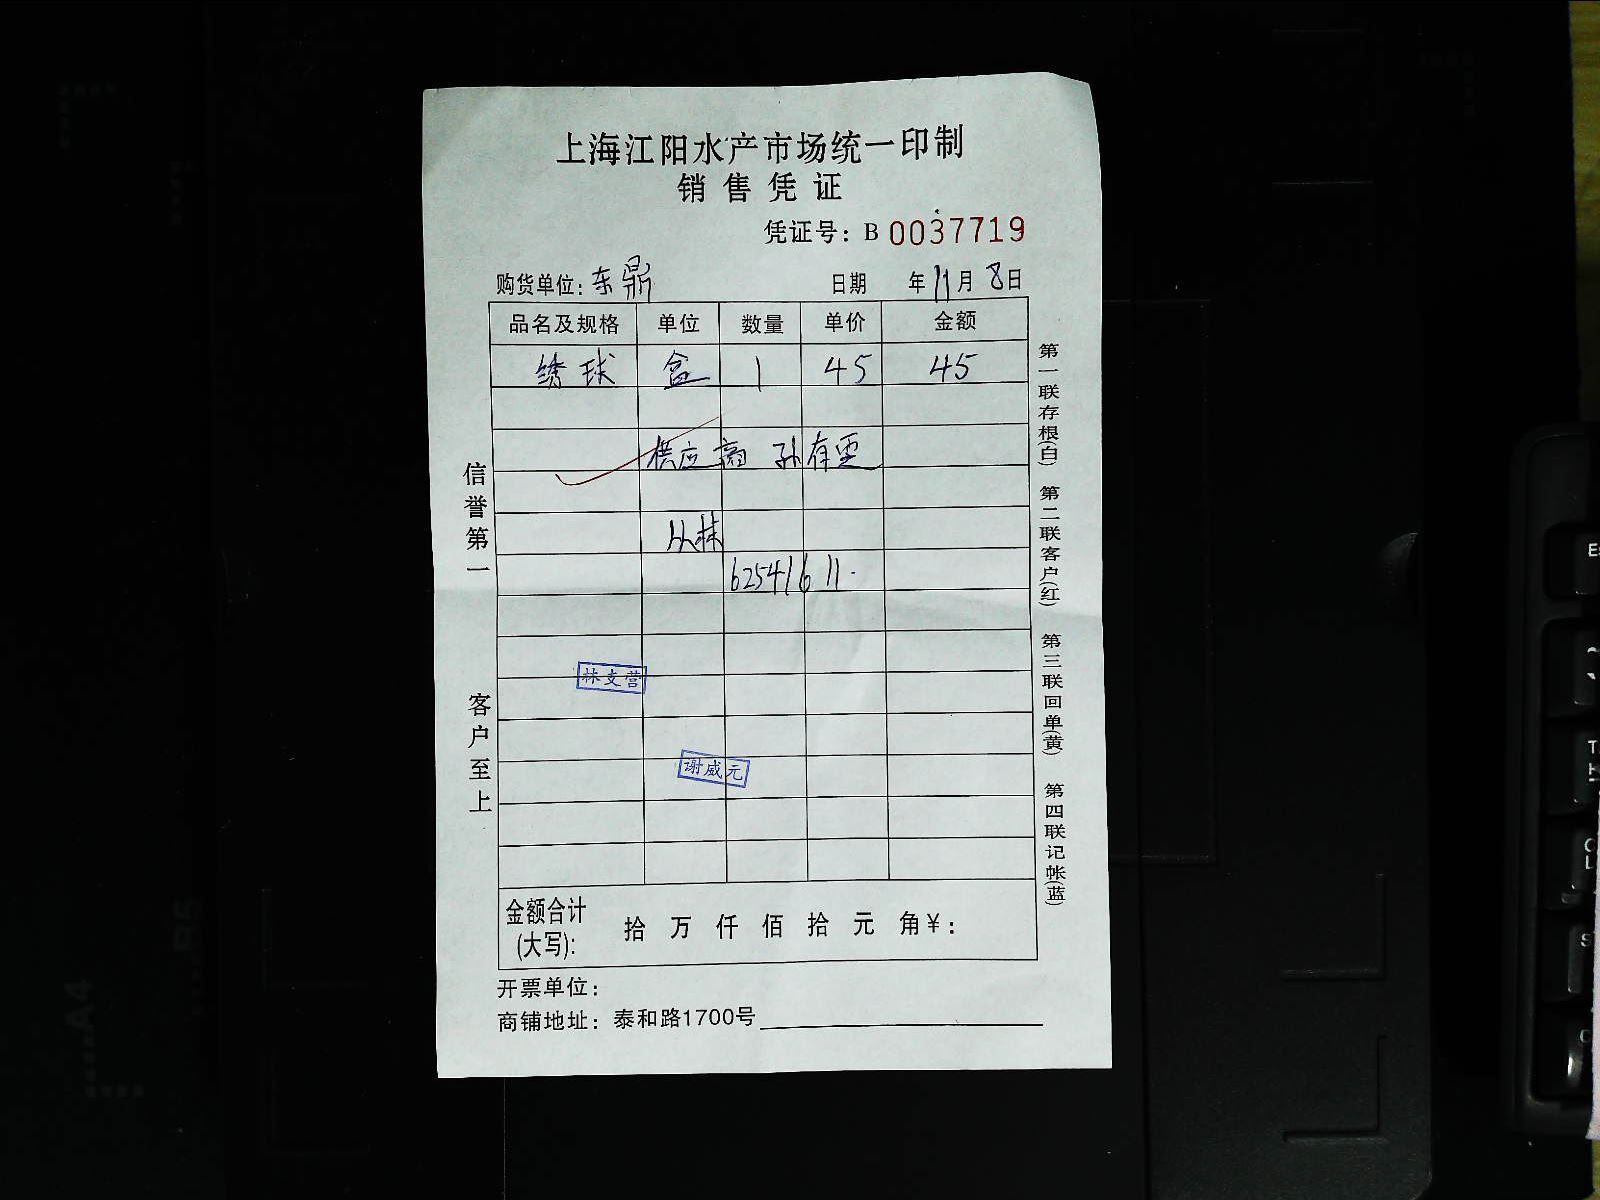 上海江阳水产市场统一印制
销售凭证
凭证号：B 0037719
购货单位：东鼎 日期 年11月8日
品名及规格 单位 数量 单价 金额
绣球 盒 1 45 45
供应商 孙有
林
62541611.
林支营
谢威元
金额合计(大写)： 拾 万 仟 佰 拾 元 角￥：
开票单位：
商铺地址：泰和路1700号
信誉第一 客户至上
第一联存根(白) 第二联客户(红) 第三联回单(黄) 第四联记帐(蓝)